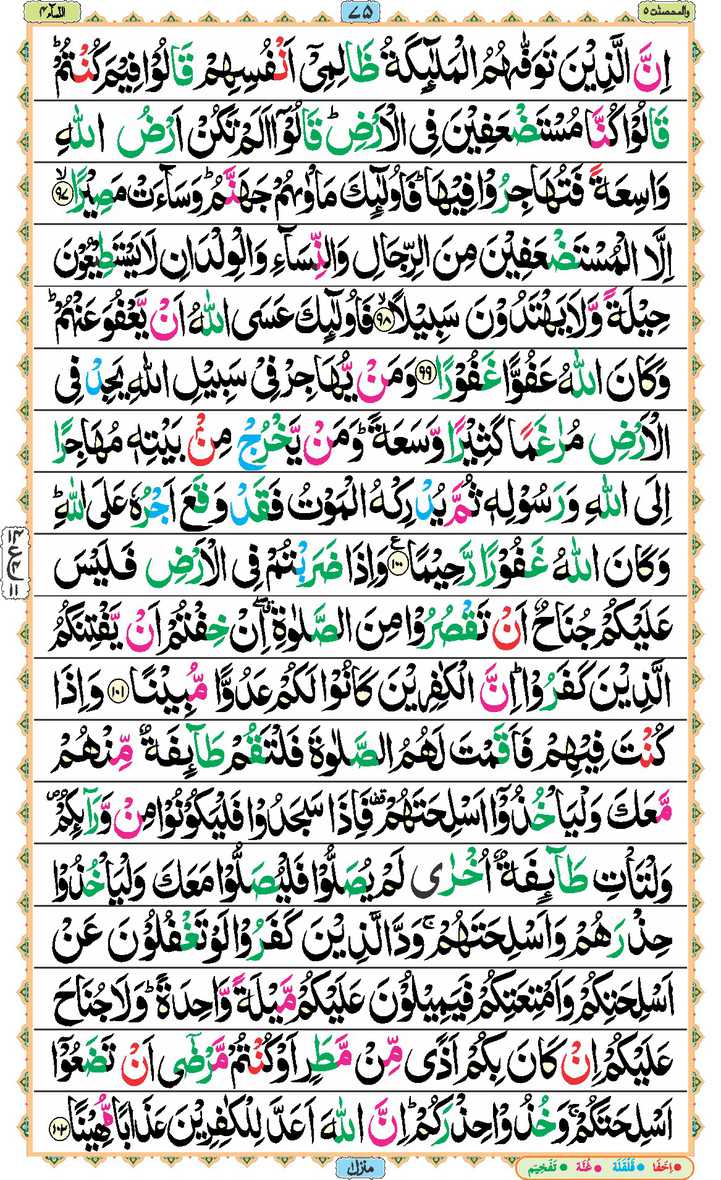 النسآء ٤
٧٥
والمحصنت ٥
اِنَّ الَّذِیْنَ تَوَفّٰىهُمُ الْمَلٰٓىِٕكَةُ ظَالِمِیْۤ اَنْفُسِهِمْ قَالُوْا فِیْمَ كُنْتُمْؕ
قَالُوْا كُنَّا مُسْتَضْعَفِیْنَ فِی الْاَرْضِؕ قَالُوْۤا اَلَمْ تَكُنْ اَرْضُ اللّٰهِ
وَاسِعَةً فَتُهَاجِرُوْا فِیْهَاؕ فَاُولٰٓىِٕكَ مَاْوٰىهُمْ جَهَنَّمُؕ وَ سَآءَتْ مَصِیْرًاۙ۹۷
اِلَّا الْمُسْتَضْعَفِیْنَ مِنَ الرِّجَالِ وَ النِّسَآءِ وَ الْوِلْدَانِ لَا یَسْتَطِیْعُوْنَ
حِیْلَةً وَّ لَا یَهْتَدُوْنَ سَبِیْلًاۙ۹۸ فَاُولٰٓىِٕكَ عَسَى اللّٰهُ اَنْ یَّعْفُوَ عَنْهُمْؕ
وَ كَانَ اللّٰهُ عَفُوًّا غَفُوْرًا۹۹ وَ مَنْ یُّهَاجِرْ فِیْ سَبِیْلِ اللّٰهِ یَجِدْ فِی
الْاَرْضِ مُرٰغَمًا كَثِیْرًا وَّ سَعَةًؕ وَ مَنْ یَّخْرُجْ مِنْۢ بَیْتِهٖ مُهَاجِرًا
اِلَى اللّٰهِ وَ رَسُوْلِهٖ ثُمَّ یُدْرِكْهُ الْمَوْتُ فَقَدْ وَقَعَ اَجْرُهٗ عَلَى اللّٰهِؕ
وَ كَانَ اللّٰهُ غَفُوْرًا رَّحِیْمًا۠۱۰۰ وَ اِذَا ضَرَبْتُمْ فِی الْاَرْضِ فَلَیْسَ
عَلَیْكُمْ جُنَاحٌ اَنْ تَقْصُرُوْا مِنَ الصَّلٰوةِ ۖۗ اِنْ خِفْتُمْ اَنْ یَّفْتِنَكُمُ
الَّذِیْنَ كَفَرُوْاؕ اِنَّ الْكٰفِرِیْنَ كَانُوْا لَكُمْ عَدُوًّا مُّبِیْنًا۱۰۱ وَ اِذَا
كُنْتَ فِیْهِمْ فَاَقَمْتَ لَهُمُ الصَّلٰوةَ فَلْتَقُمْ طَآىِٕفَةٌ مِّنْهُمْ
مَّعَكَ وَ لْیَاْخُذُوْۤا اَسْلِحَتَهُمْ۫ فَاِذَا سَجَدُوْا فَلْیَكُوْنُوْا مِنْ وَّرَآىِٕكُمْ۪
وَ لْتَاْتِ طَآىِٕفَةٌ اُخْرٰى لَمْ یُصَلُّوْا فَلْیُصَلُّوْا مَعَكَ وَ لْیَاْخُذُوْا
حِذْرَهُمْ وَ اَسْلِحَتَهُمْۚ وَدَّ الَّذِیْنَ كَفَرُوْا لَوْ تَغْفُلُوْنَ عَنْ
اَسْلِحَتِكُمْ وَ اَمْتِعَتِكُمْ فَیَمِیْلُوْنَ عَلَیْكُمْ مَّیْلَةً وَّاحِدَةًؕ وَ لَا جُنَاحَ
عَلَیْكُمْ اِنْ كَانَ بِكُمْ اَذًى مِّنْ مَّطَرٍ اَوْ كُنْتُمْ مَّرْضٰۤى اَنْ تَضَعُوْۤا
اَسْلِحَتَكُمْۚ وَ خُذُوْا حِذْرَكُمْؕ اِنَّ اللّٰهَ اَعَدَّ لِلْكٰفِرِیْنَ عَذَابًا مُّهِیْنًا۱۰۲
منزل
اِخْفَا قَلْقَلَهْ غُنَّهْ تَفْخِیْم